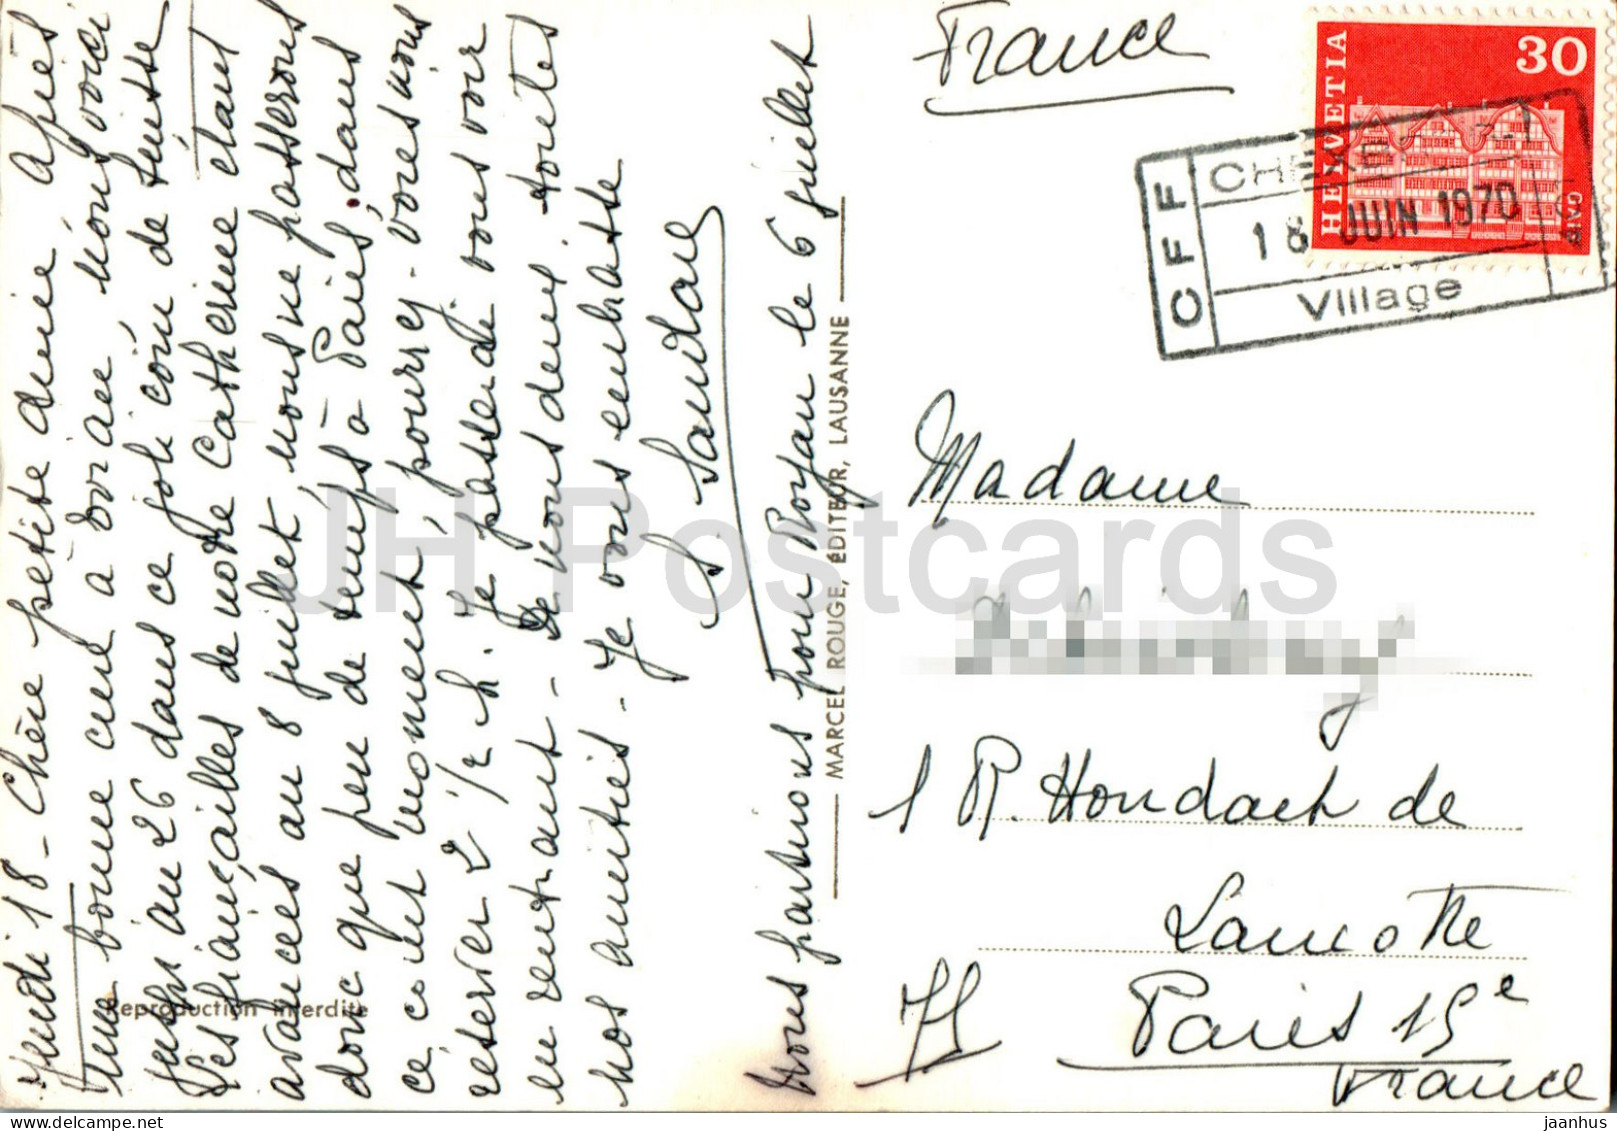 Jeudi 18 - Chère petite amie, après
une bonne cure à Evian, nous voici
jusqu'au 26 dans ce joli coin de Suisse
Les fiançailles de notre Catherine étant
avancées au 8 juillet, nous ne passerons
donc que peu de temps à Paris, dans
ce court moment, pourrez-vous nous
réserver 2 1/2 h. Je passerai vous voir
en rentrant - De nous deux, toutes
nos amitiés - Je vous embrasse
Nous partirons pour Royan le 6 juillet
Reproduction interdite
MARCEL ROUGE, ÉDITEUR, LAUSANNE
France
HELVETIA
30
GAIS
CFF
18 JUIN 1970
Village
Madame
1 R. Houdart de
Lamotte
75 Paris 15e
France
JH Postcards
www.delcampe.net
jaanhus